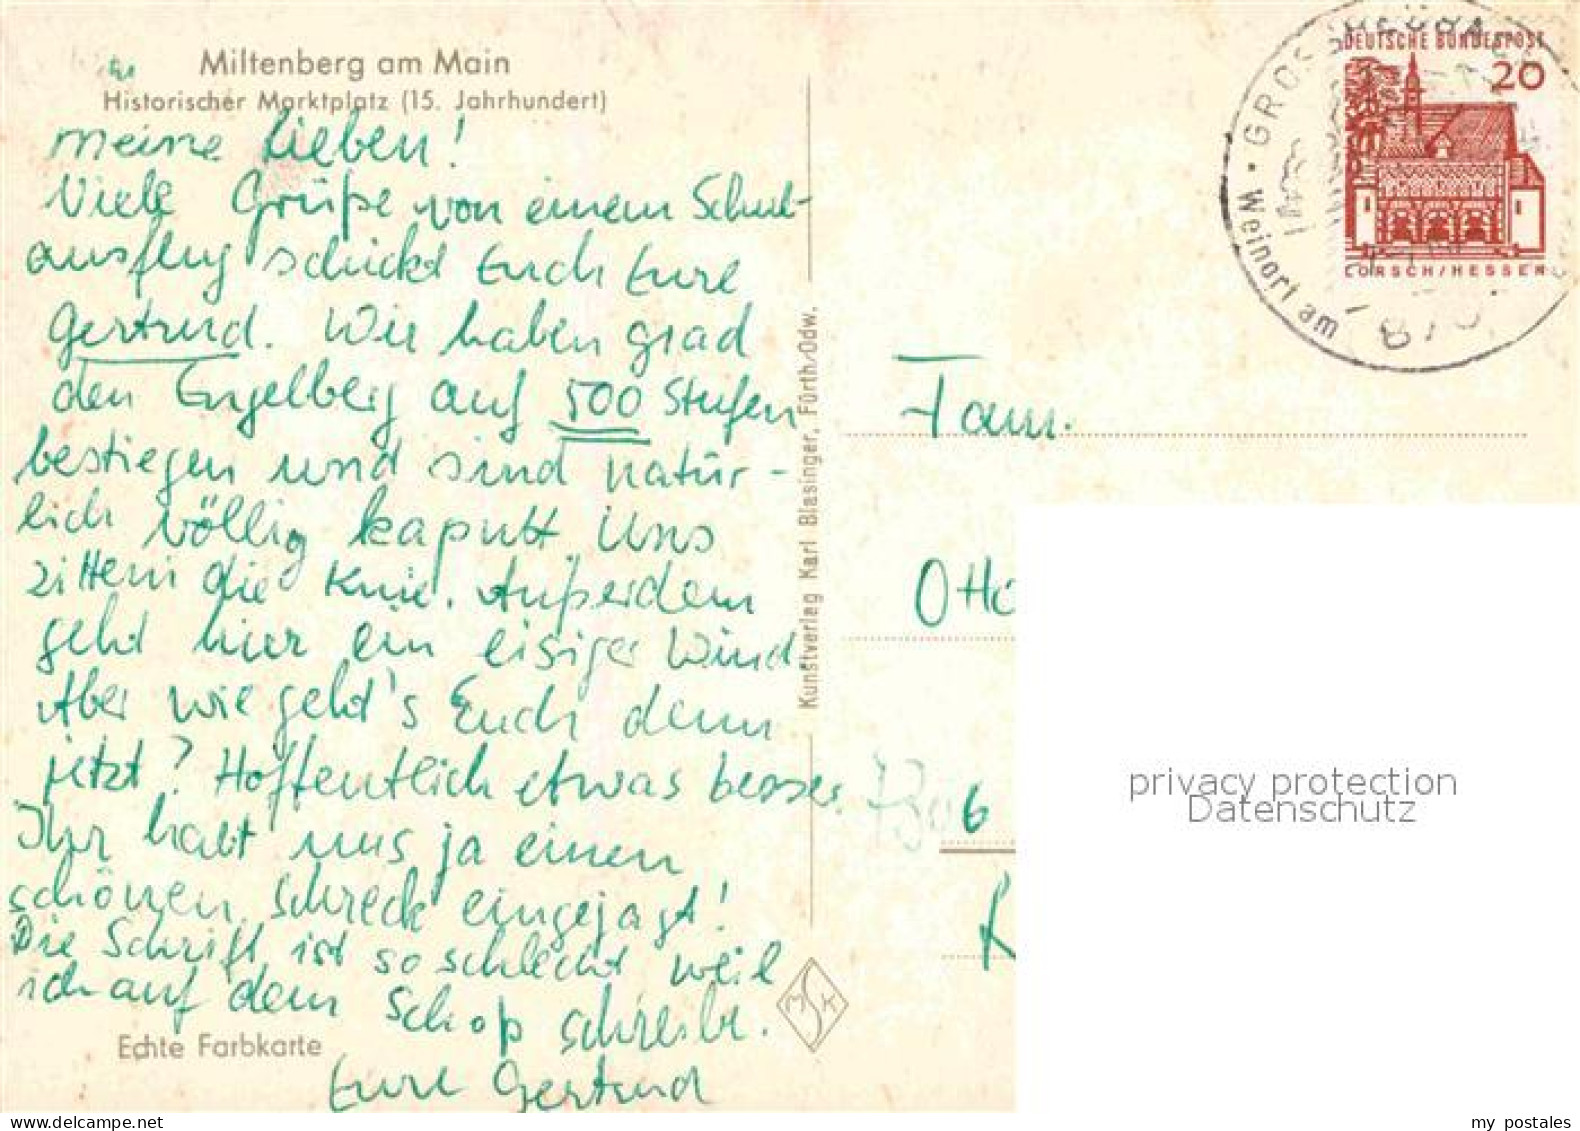 Miltenberg am Main
Historischer Marktplatz (15. Jahrhundert)
Meine Lieben!
Viele Grüße von einem Schul-
ausflug schickt Euch Eure
Gertrud. Wir haben grad
den Engelberg auf 500 Stufen
bestiegen und sind natür-
lich völlig kaputt. Uns
zittern die Knie. Außerdem
geht hier ein eisiger Wind
Aber wie geht's Euch denn
jetzt? Hoffentlich etwas besser.
Ihr habt uns ja einen
schönen Schreck eingejagt!
Die Schrift ist so schlecht weil
ich auf dem Schoß schreibe.
Eure Gertrud
Echte Farbkarte
Kunstverlag Karl Blasinger, Fürth/Odw.
DEUTSCHE BUNDESPOST
20
LORSCH/HESSEN
Weinort am
Fam.
Otto
6
privacy protection
Datenschutz
my postales